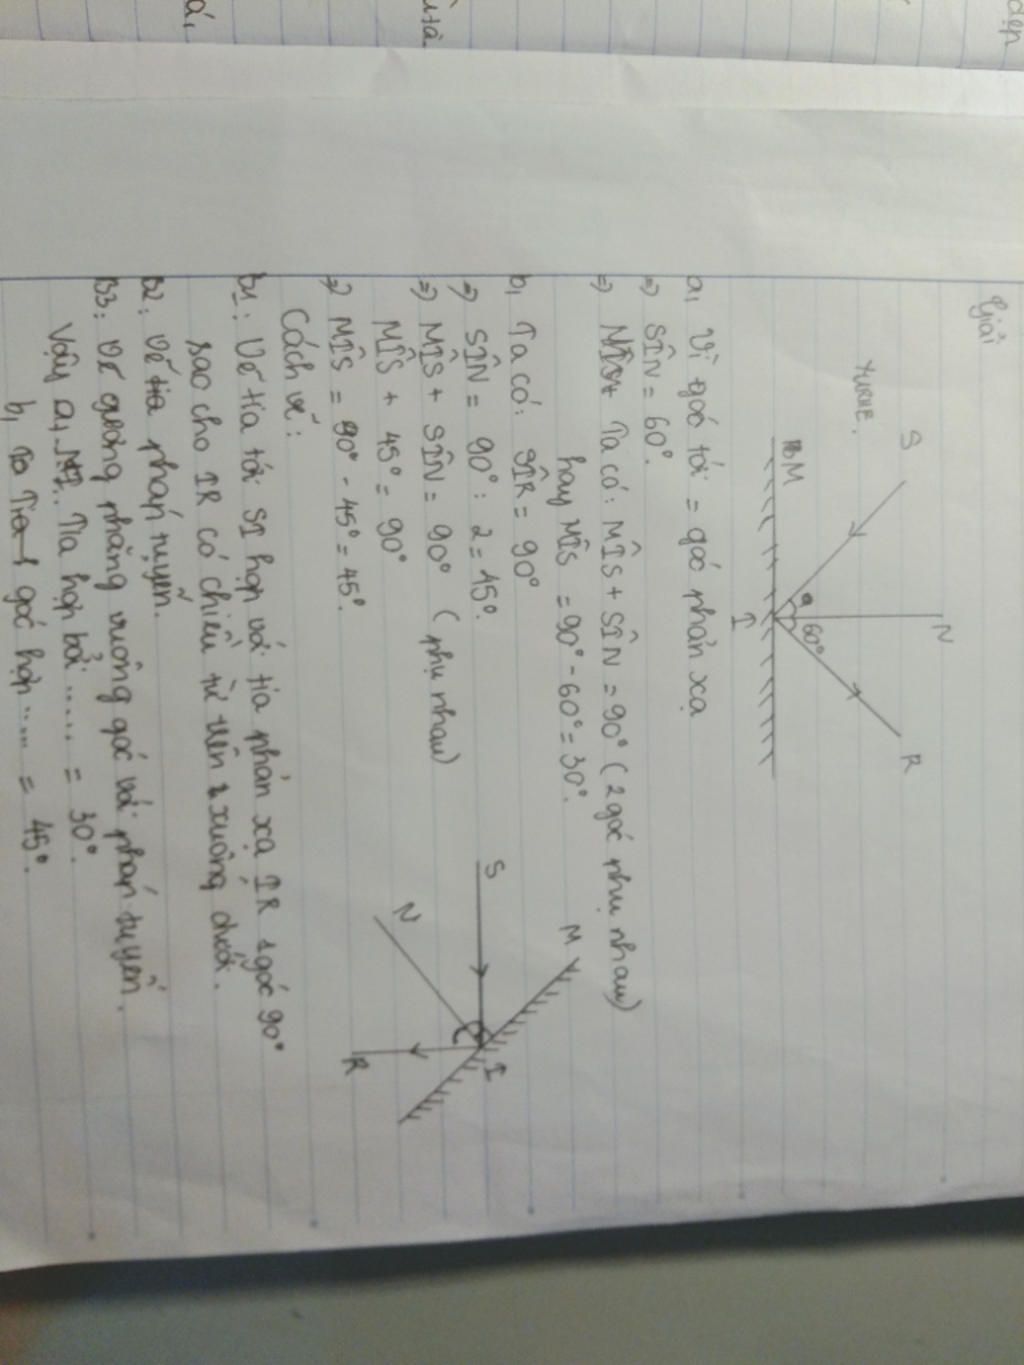 Giải
YURHE.
S
N
R
a
60°
M
I
a, Vì góc tới = góc phản xạ
=> SÎN = 60°.
=> Ta có: MÎS + SÎN = 90° (2 góc phụ nhau)
hay MÎS = 90° - 60° = 30°.
b, Ta có: SÎR = 90°
=> SÎN = 90° : 2 = 45°.
=> MÎS + SÎN = 90° (phụ nhau)
MÎS + 45° = 90°
=> MÎS = 90° - 45° = 45°.
M
S
I
N
R
Cách vẽ:
B1: Vẽ tia tới SI hợp với tia phản xạ IR 1 góc 90°
sao cho IR có chiều từ trên xuống dưới.
B2: Vẽ tia pháp tuyến.
B3: Vẽ gương phẳng vuông góc với pháp tuyến.
Vậy a, Tia hợp bởi ..... = 30°.
b, Tia góc hợp ..... = 45°.
á,
đẹp